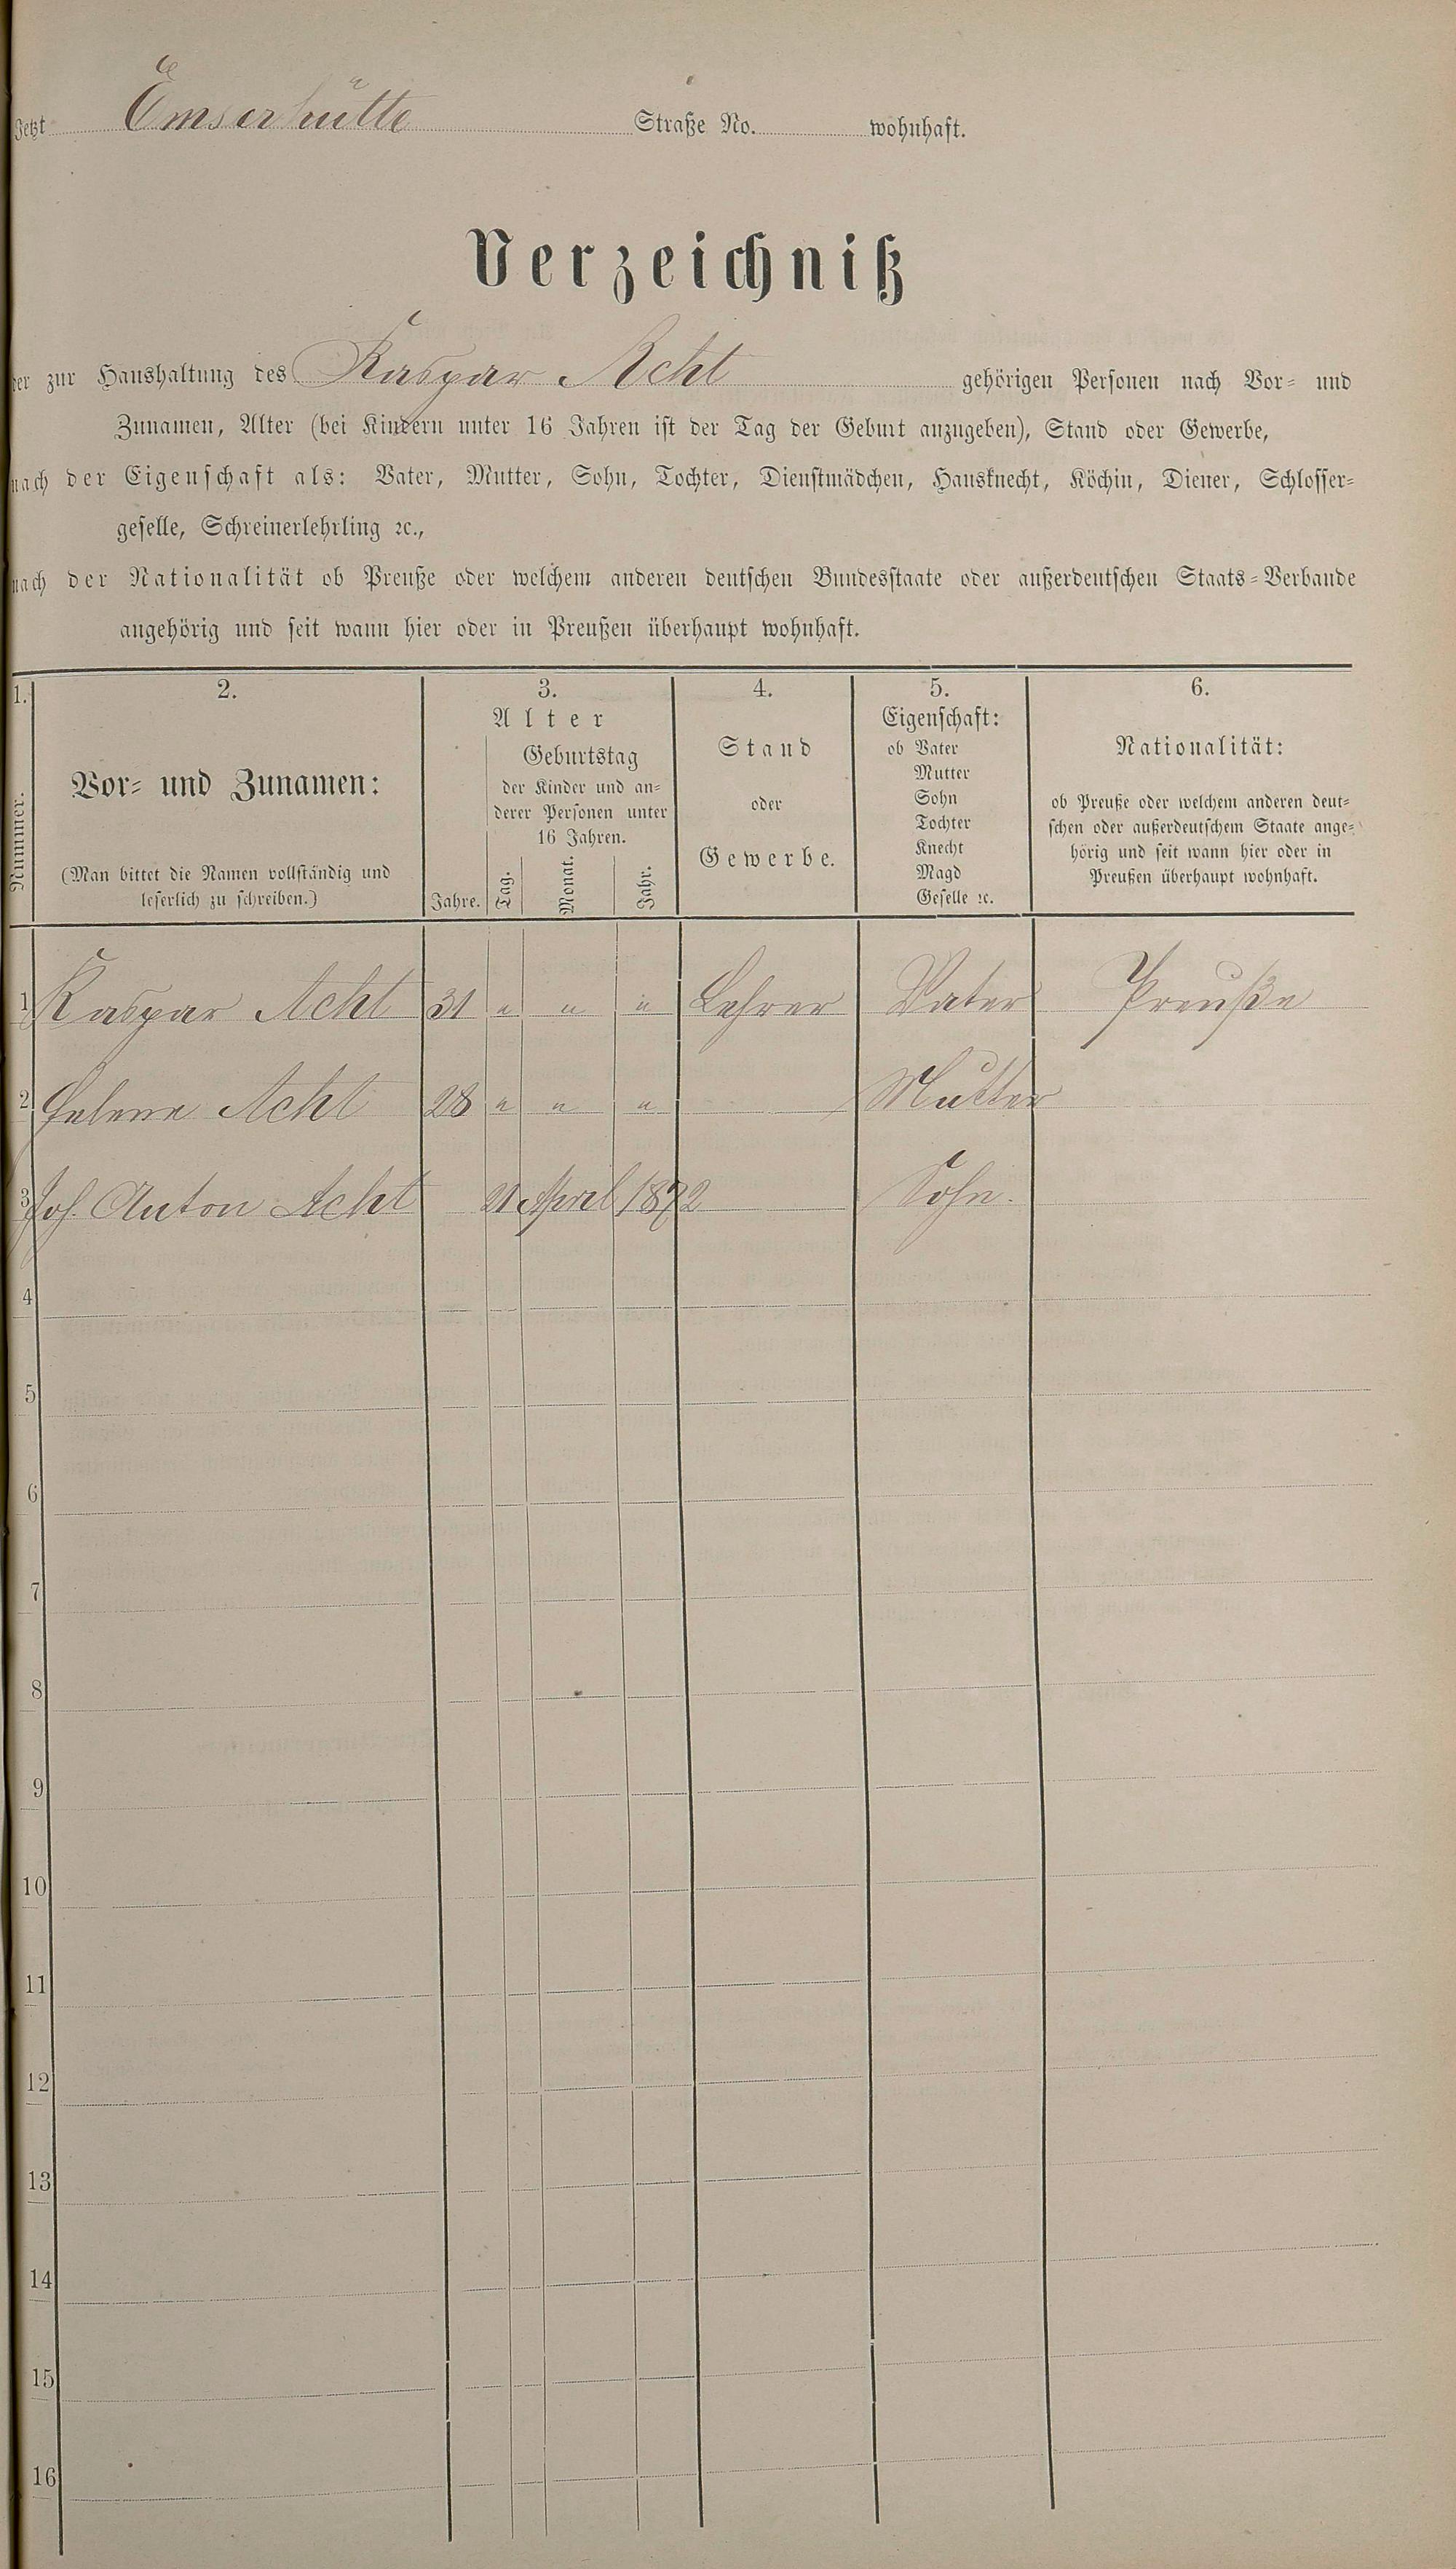 Jetzt Emserhütte Straße No. wohnhaft.
Verzeichniß
der zur Haushaltung des Kaspar Acht gehörigen Personen nach Vor- und
Zunamen, Alter (bei Kindern unter 16 Jahren ist der Tag der Geburt anzugeben), Stand oder Gewerbe,
nach der Eigenschaft als: Vater, Mutter, Sohn, Tochter, Dienstmädchen, Hausknecht, Köchin, Diener, Schlosser-
geselle, Schreinerlehrling ꝛc.,
nach der Nationalität ob Preuße oder welchem anderen deutschen Bundesstaate oder außerdeutschen Staats-Verbande
angehörig und seit wann hier oder in Preußen überhaupt wohnhaft.
1. 2. 3. 4. 5. 6.
Nummer.
Vor- und Zunamen:
(Man bittet die Namen vollständig und
leserlich zu schreiben.)
Alter
Jahre.
Geburtstag
der Kinder und an-
derer Personen unter
16 Jahren.
Tag. Monat. Jahr.
Stand
oder
Gewerbe.
Eigenschaft:
ob Vater
Mutter
Sohn
Tochter
Knecht
Magd
Geselle ꝛc.
Nationalität:
ob Preuße oder welchem anderen deut-
schen oder außerdeutschem Staate ange-
hörig und seit wann hier oder in
Preußen überhaupt wohnhaft.
1 Kaspar Acht 31 " " " Lehrer Vater Preuße
2 Helena Acht 28 " " " Mutter
3 Joh. Anton Acht 21 April 1872 Sohn.
4
5
6
7
8
9
10
11
12
13
14
15
16